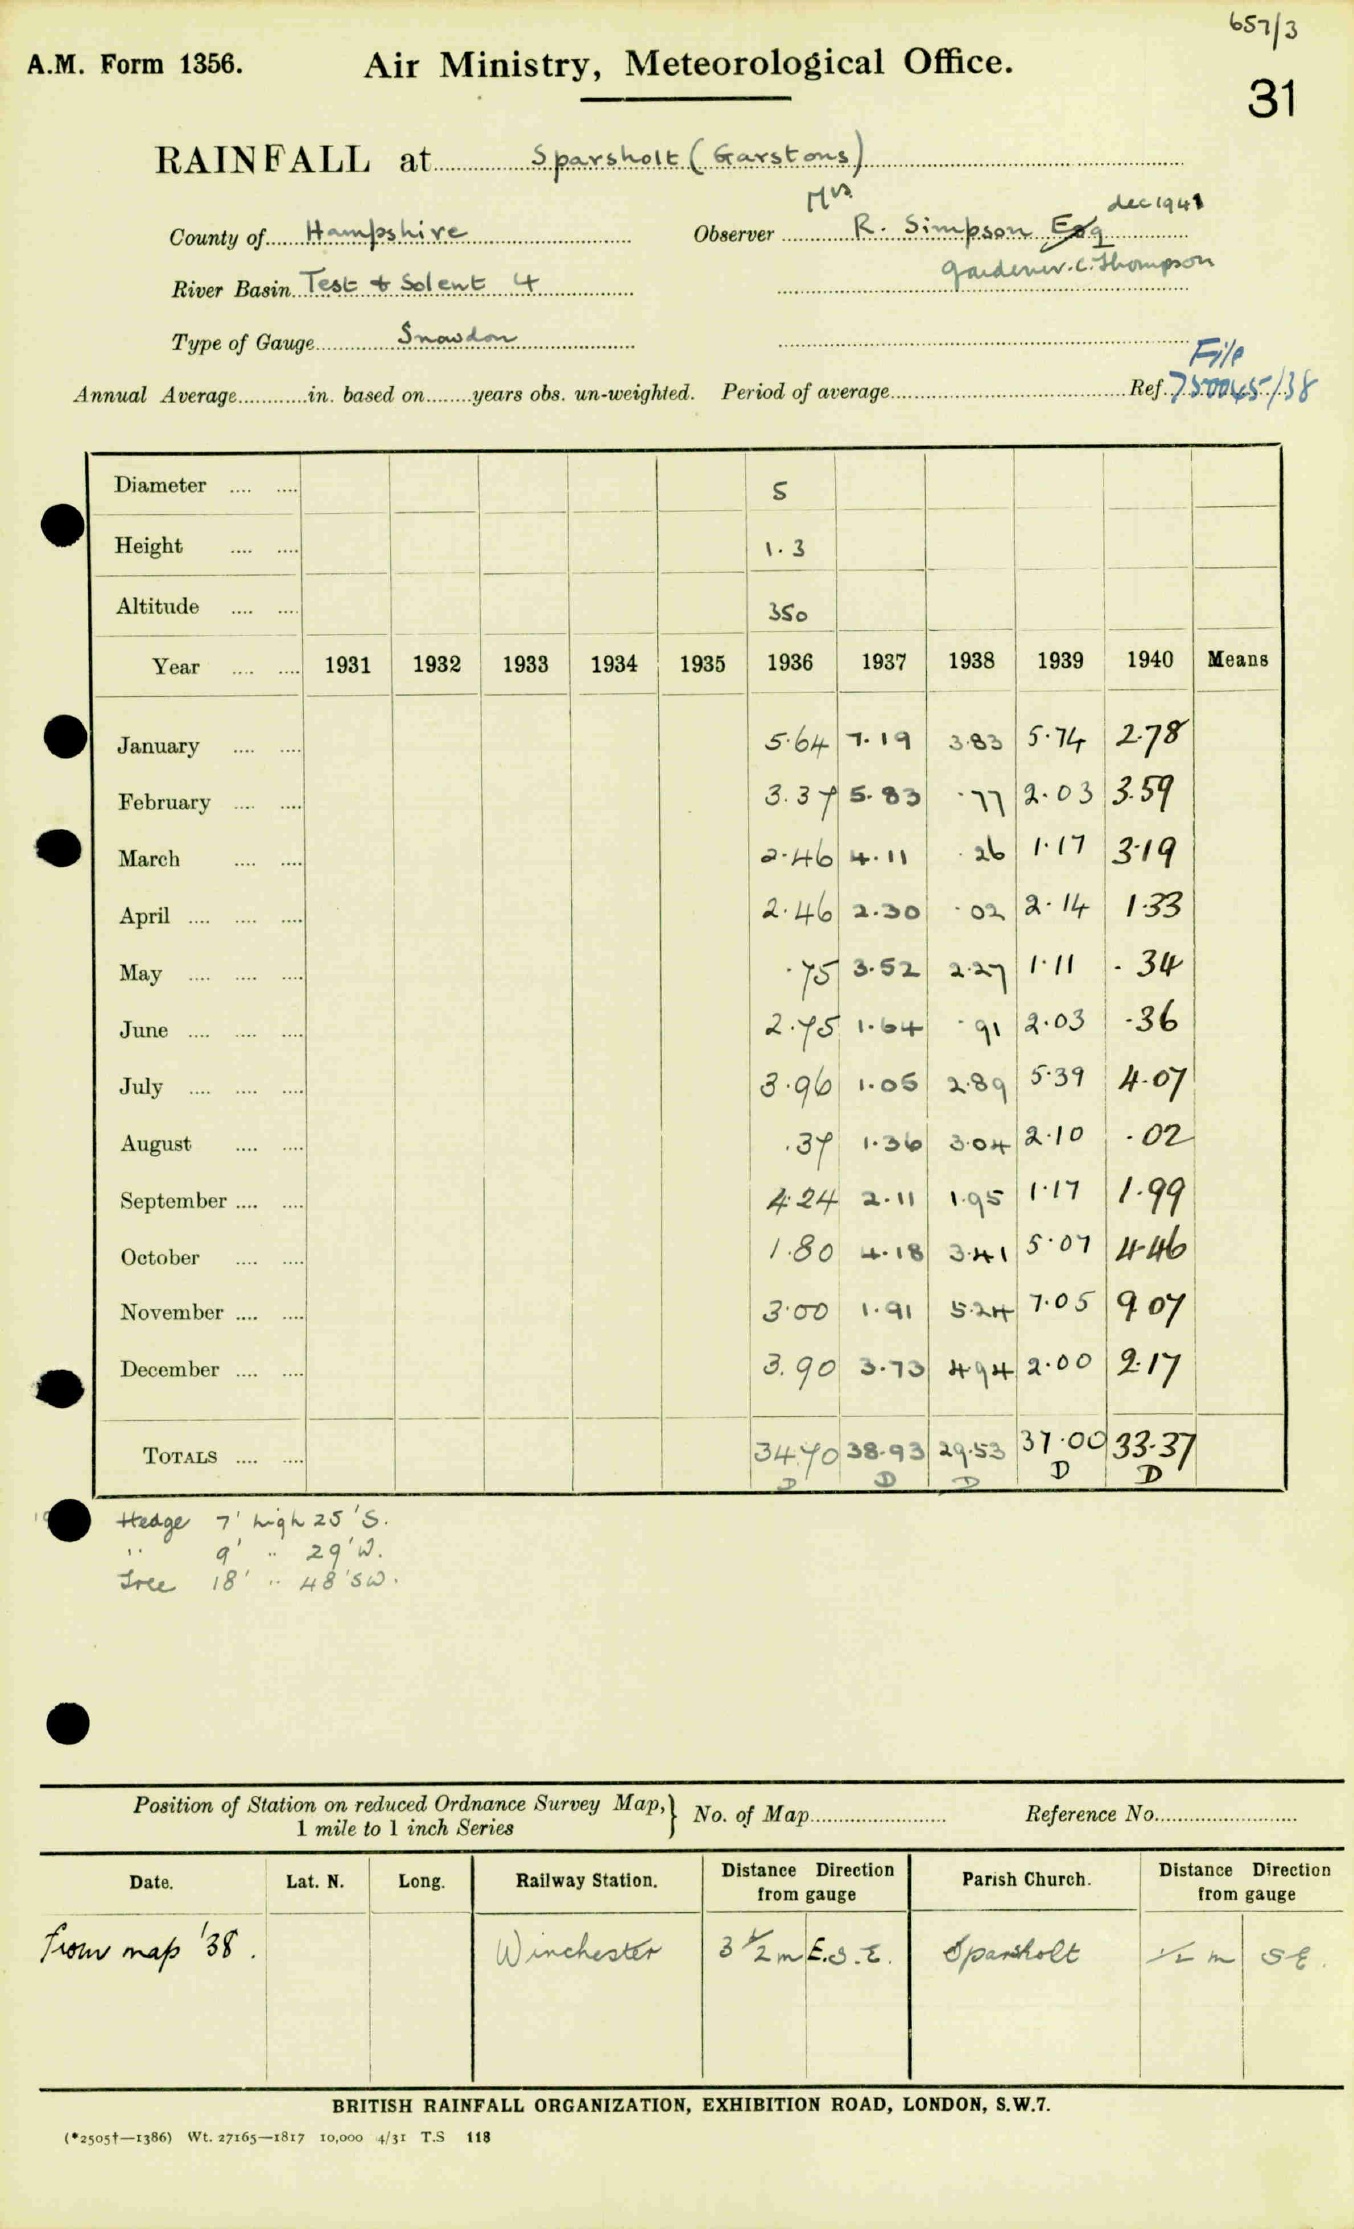 657/3
A.M. Form 1356. Air Ministry, Meteorological Office.
31
RAINFALL at Sparsholt (Garstons)
Mrs dec 1941
County of Hampshire Observer R. Simpson Esq
gardener. C. Thompson
River Basin Test & Solent 4
Type of Gauge Snowdon
File
Annual Average in. based on years obs. un-weighted. Period of average Ref. 750045/38
Diameter 5
Height 1.3
Altitude 350
Year 1931 1932 1933 1934 1935 1936 1937 1938 1939 1940 Means
January 5.64 7.19 3.83 5.74 2.78
February 3.37 5.83 .77 2.03 3.59
March 2.46 4.11 .26 1.17 3.19
April 2.46 2.30 .02 2.14 1.33
May .75 3.52 2.27 1.11 .34
June 2.75 1.64 .91 2.03 .36
July 3.96 1.05 2.89 5.39 4.07
August .37 1.36 3.04 2.10 .02
September 4.24 2.11 1.95 1.17 1.99
October 1.80 4.18 3.41 5.07 4.46
November 3.00 1.91 5.24 7.05 9.07
December 3.90 3.73 4.94 2.00 2.17
TOTALS 34.70 38.93 29.53 37.00 33.37
D D D D D
Hedge 7' high 25' S.
" 9' " 29' W.
Tree 18' " 48' SW.
Position of Station on reduced Ordnance Survey Map, } No. of Map Reference No.
1 mile to 1 inch Series
Date. Lat. N. Long. Railway Station. Distance Direction from gauge Parish Church. Distance Direction from gauge
from map '38. Winchester 3 1/2 m E.S.E. Sparsholt 1/2 m SE.
BRITISH RAINFALL ORGANIZATION, EXHIBITION ROAD, LONDON, S.W.7.
(*2505†—1386) Wt. 27165—1817 10,000 4/31 T.S 118